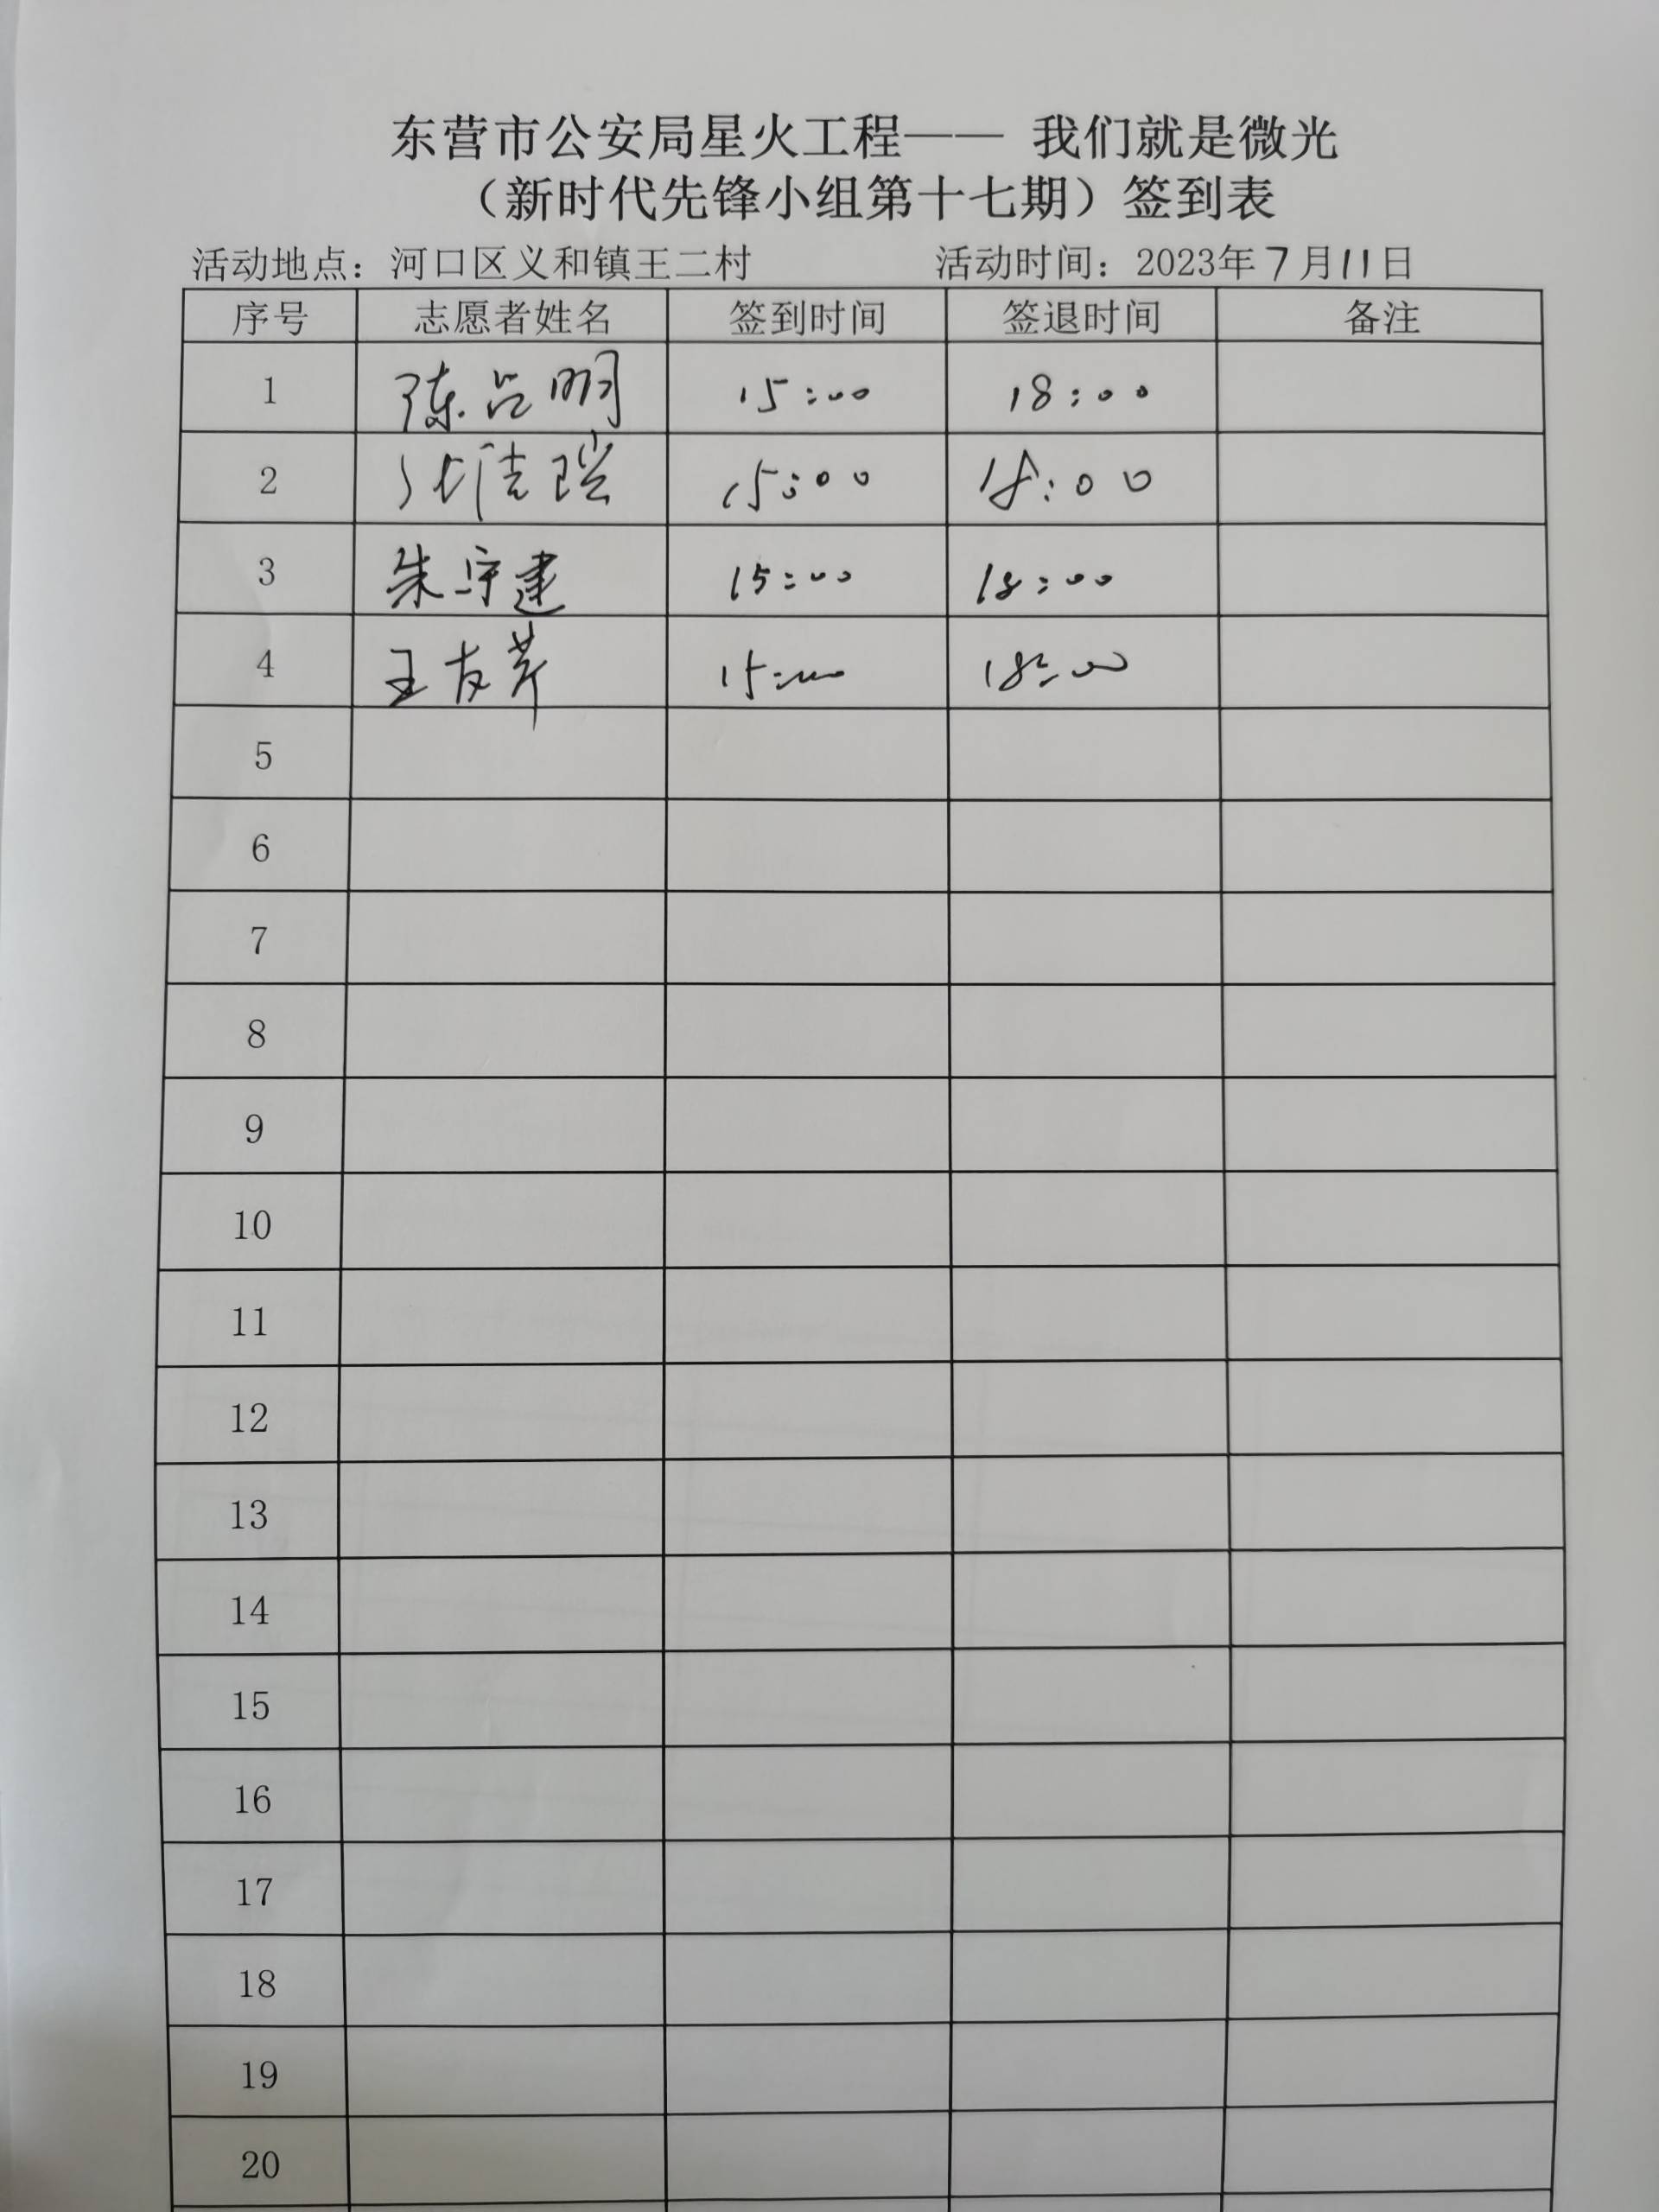 东营市公安局星火工程—— 我们就是微光
（新时代先锋小组第十七期）签到表
活动地点：河口区义和镇王二村 活动时间：2023年7月11日
序号 志愿者姓名 签到时间 签退时间 备注
1 陈吕明 15:00 18:00
2 15:00 18:00
3 朱守建 15:00 18:00
4 王友芹 15:00 18:00
5
6
7
8
9
10
11
12
13
14
15
16
17
18
19
20